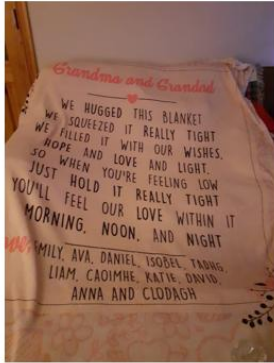 Grandma and Grandad
WE HUGGED THIS BLANKET
WE SQUEEZED IT REALLY TIGHT
WE FILLED IT WITH OUR WISHES,
HOPE AND LOVE AND LIGHT.
SO WHEN YOU'RE FEELING LOW
JUST HOLD IT REALLY TIGHT
YOU'LL FEEL OUR LOVE WITHIN IT
MORNING, NOON, AND NIGHT
EMILY, AVA, DANIEL, ISOBEL, TADHG,
LIAM, CAOIMHE, KATIE, DAVID,
ANNA AND CLODAGH